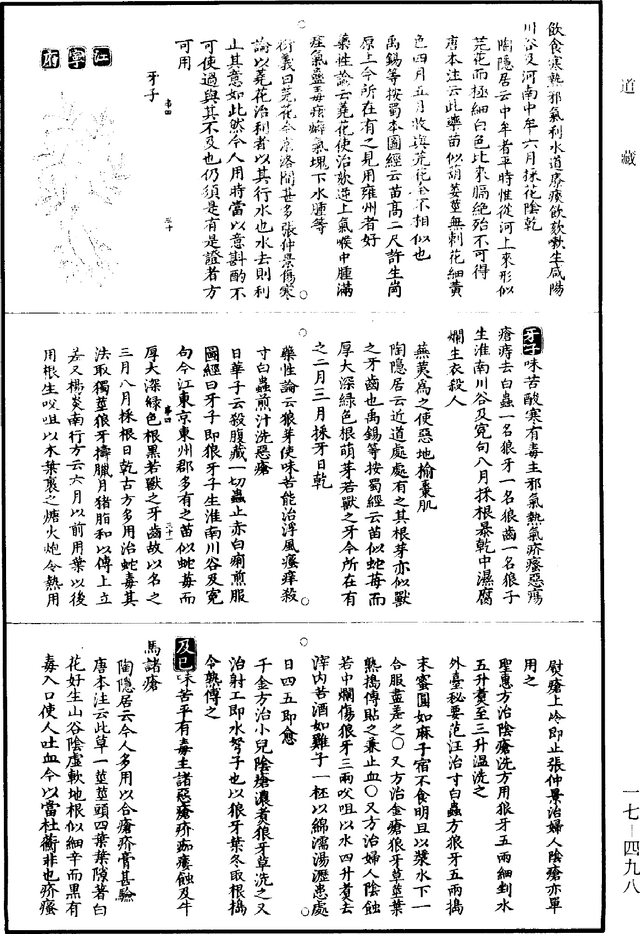 道藏
飲食寒熱邪氣利水道療痰飲欬嗽生咸陽
川谷及河南中牟六月採花陰乾
陶隱居云中牟者平時惟從河上來形似
芫花而極細白色比來隔絕殆不可得
唐本注云此藥苗似胡荽莖無刺花細黃
色四月五月收與芫花全不相似也
禹錫等按蜀本圖經云苗高二尺許生崗
原上今所在有之見用雍州者好
藥性論云蕘花使治欬逆上氣喉中腫滿
疰氣蠱毒痃癖氣塊下水腫等
衍義曰蕘花今京洛間甚多張仲景傷寒
論以蕘花治利者以其行水也水去則利
止其意如此然今人用時當以意斟酌不
可使過與其不及也仍須是有是證者方
可用
牙子
江寧府
牙子味苦酸寒有毒主邪氣熱氣疥瘙惡瘍
瘡痔去白蟲一名狼牙一名狼齒一名狼子
生淮南川谷及冤句八月採根暴乾中濕腐
爛生衣殺人
蕪荑爲之使惡地榆棗肌
陶隱居云近道處處有之其根芽亦似獸
之牙齒也禹錫等按蜀經云苗似蛇莓而
厚大深綠色根萌芽若獸之牙今所在有
之二月三月採牙日乾
藥性論云狼芽使味苦能治浮風瘙痒殺
寸白蟲煎汁洗惡瘡
日華子云殺腹藏一切蟲止赤白痢煎服
圖經曰牙子即狼牙子生淮南川谷及冤
句今江東京東州郡多有之苗似蛇莓而
厚大深綠色根黑若獸之牙齒故以名之
三月八月採根日乾古方多用治蛇毒其
法取獨莖狼牙擣臘月猪脂和以傅上立
差又楊炎南行方云六月以前用葉以後
用根生㕮咀以木葉裹之煻火炮令熱用
熨瘡上冷即止張仲景治婦人陰瘡亦單
用之
聖惠方治陰瘡洗方用狼牙五兩細剉水
五升煑至三升溫洗之
外臺秘要范汪治寸白蟲方狼牙五兩搗
末蜜圓如麻子宿不食明旦以漿水下一
合服盡差之〇又方治金瘡狼牙草莖葉
熟搗傅貼之兼止血〇又方治婦人陰蝕
若中爛傷狼牙三兩㕮咀以水四升煑去
滓内苦酒如雞子一杯以綿濡湯瀝患處
日四五即愈
千金方治小兒陰瘡濃煑狼牙草洗之又
治射工即水弩子也以狼牙葉冬取根搗
令熟傅之
及已味苦平有毒主諸惡瘡疥痂瘻蝕及牛
馬諸瘡
陶隱居云今人多用以合瘡疥膏甚驗
唐本注云此草一莖莖頭四葉葉隙著白
花好生山谷陰虛軟地根似細辛而黑有
毒入口使人吐血今以當杜蘅非也疥瘙
一七—四九八